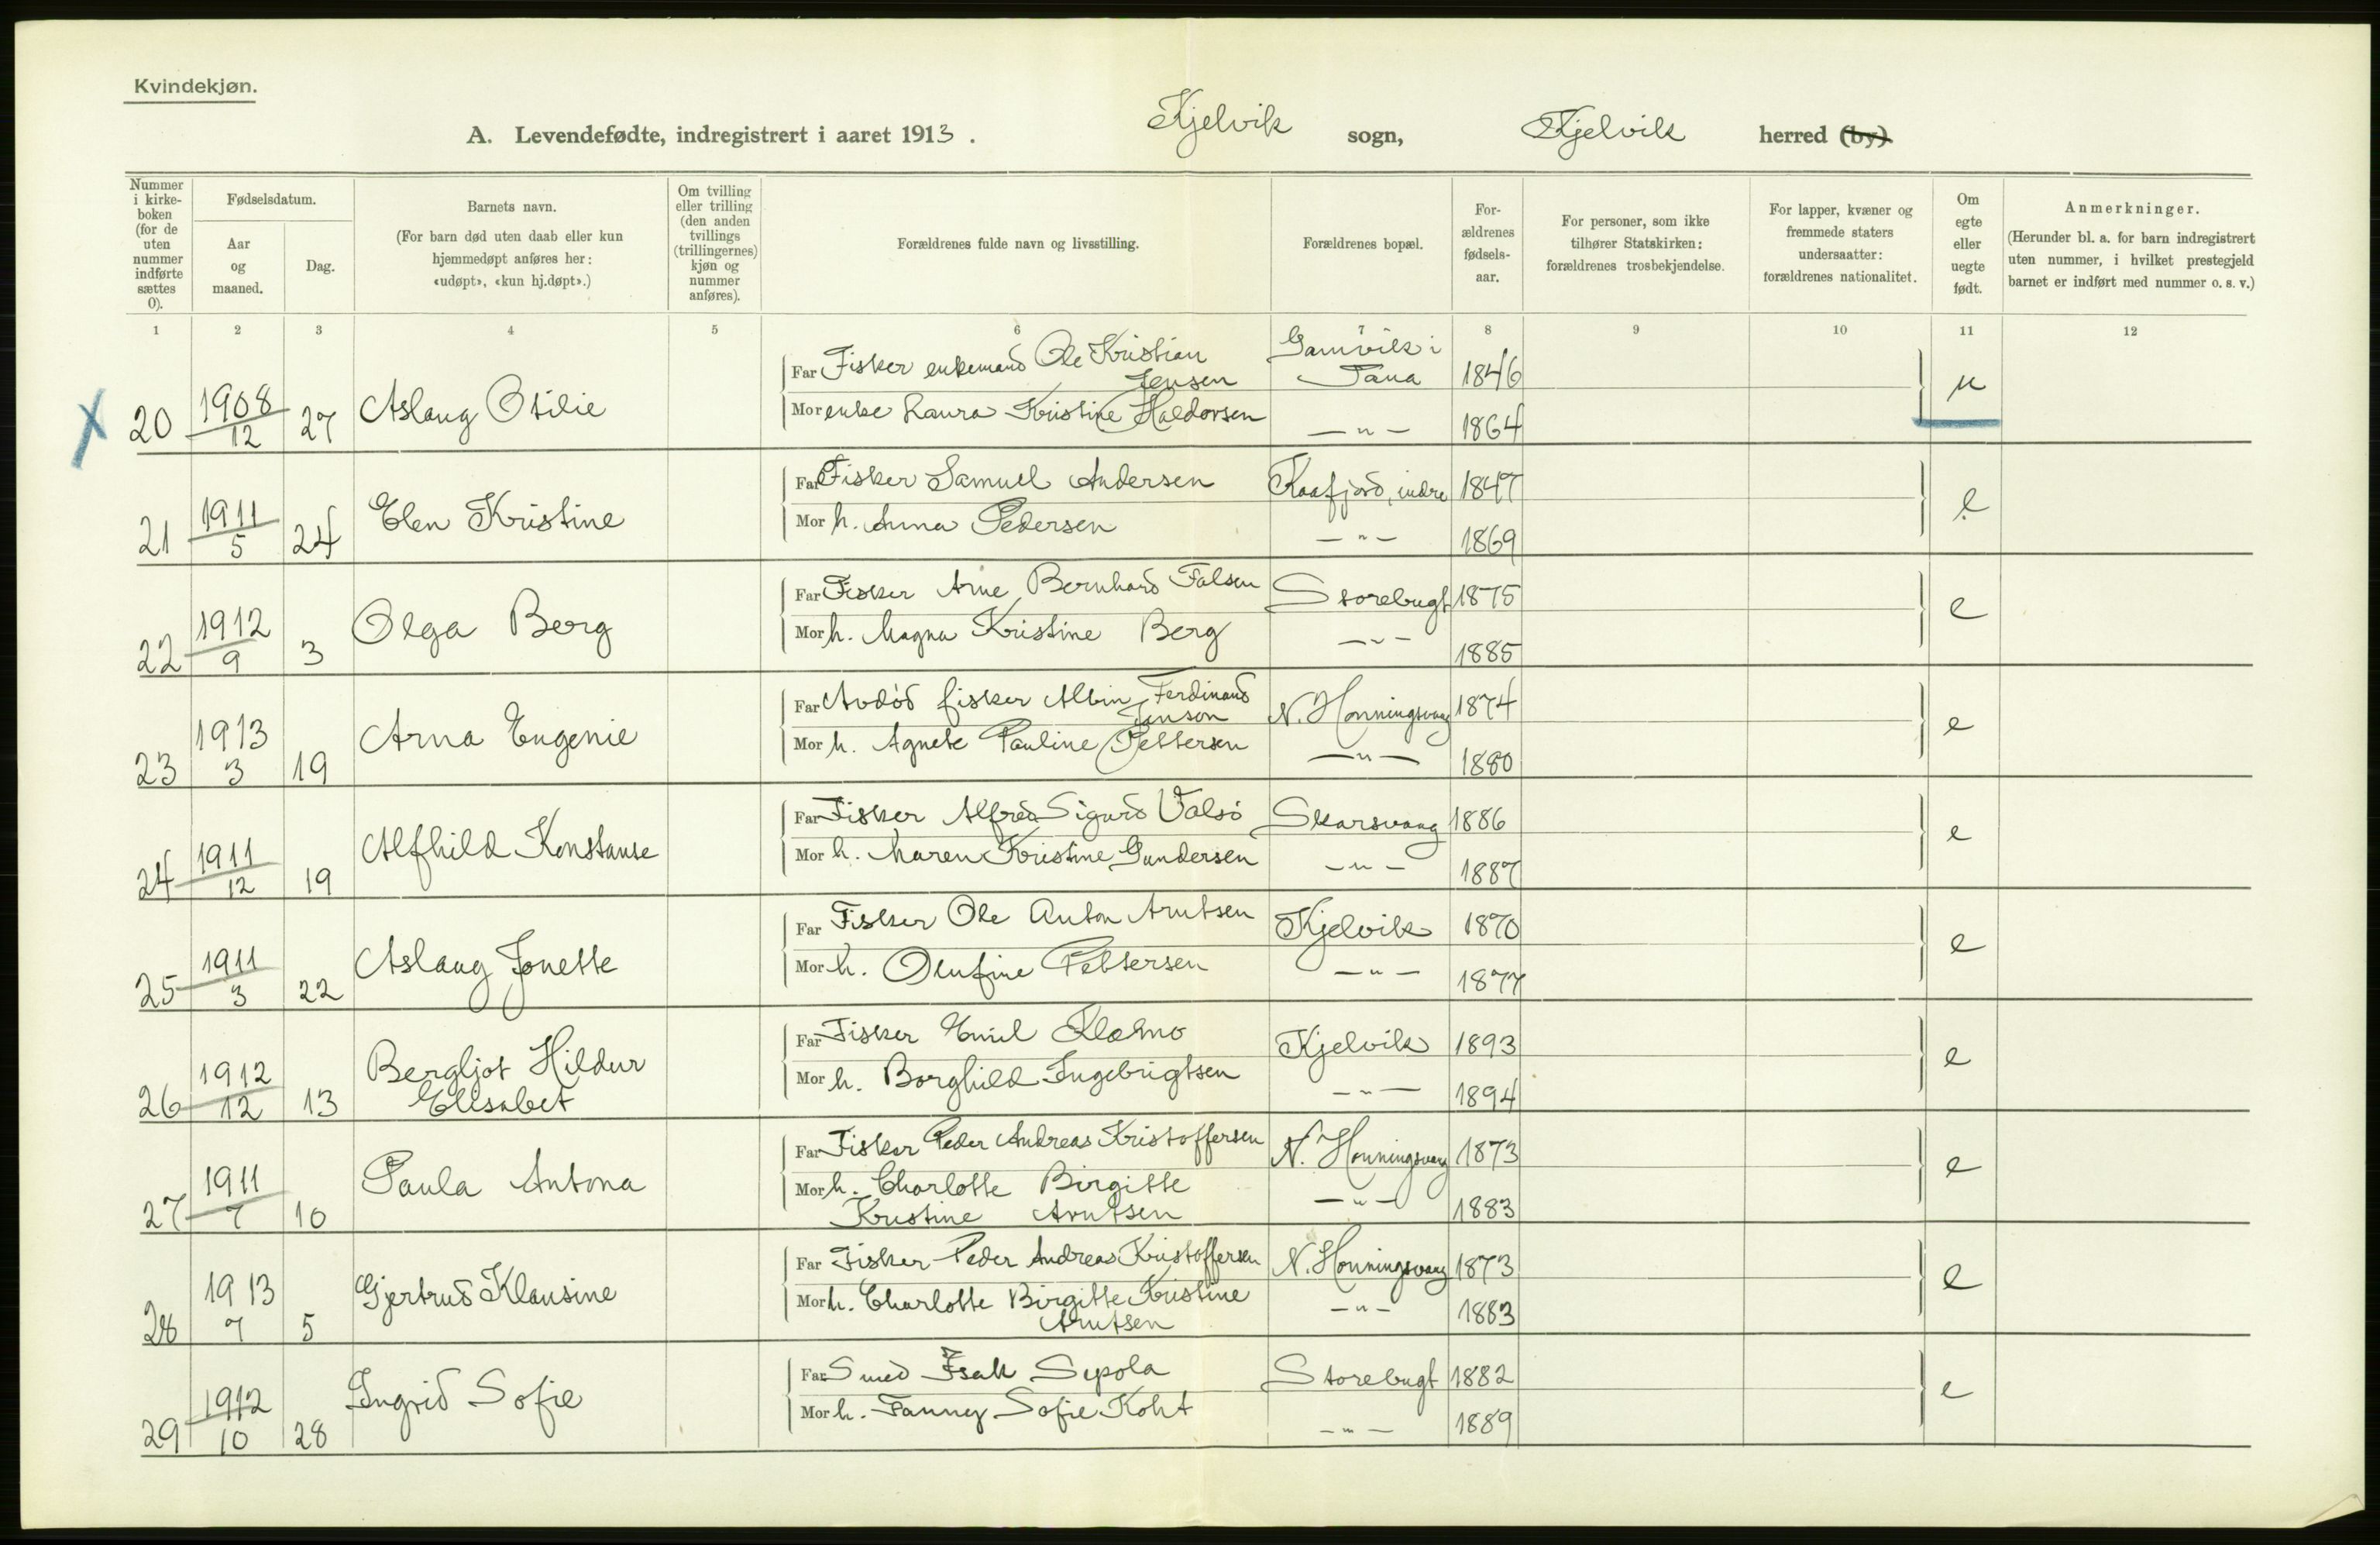 Kvindekjøn.
A. Levendefødte, indregistrert i aaret 1913. Kjelvik sogn, Kjelvik herred (by).
Nummer i kirkeboken (for de uten nummer indførte sættes 0).
Fødselsdatum.
Aar og maaned.
Dag.
Barnets navn.
(For barn død uten daab eller kun hjemmedøpt anføres her: «udøpt», «kun hj.døpt».)
Om tvilling eller trilling (den anden tvillings (trillingernes) kjøn og nummer anføres).
Forældrenes fulde navn og livsstilling.
Forældrenes bopæl.
Forældrenes fødselsaar.
For personer, som ikke tilhører Statskirken: forældrenes trosbekjendelse.
For lapper, kvæner og fremmede staters undersaatter: forældrenes nationalitet.
Om egte eller uegte født.
Anmerkninger.
(Herunder bl. a. for barn indregistrert uten nummer, i hvilket prestegjeld barnet er indført med nummer o. s. v.)
1 2 3 4 5 6 7 8 9 10 11 12
X 20 1908/12 27 Aslaug Otilie
Far Fisker enkemand Ole Kristian Jensen Gamvik i Tana 1846 u
Mor enke Laura Kristine Haldorsen —"— 1864
21 1911/5 24 Elen Kristine
Far Fisker Samuel Andersen Kaafjord, indre 1847 e
Mor h. Anna Pedersen —"— 1869
22 1912/9 3 Olga Berg
Far Fisker Arne Bernhard Falsen Storebugt 1875 e
Mor h. Magna Kristine Berg —"— 1885
23 1913 3 19 Arna Eugenie
Far Avdød fisker Albin Ferdinand Jenson N. Honningsvaag 1874 e
Mor h. Agnete Pauline Pettersen —"— 1880
24 1911/12 19 Alfhild Konstanse
Far Fisker Alfred Sigurd Valsö Skarsvaag 1886 e
Mor h. Maren Kristine Gundersen —"— 1887
25 1911/3 22 Aslaug Jonette
Far Fisker Ole Anton Arntsen Kjelvik 1870 e
Mor h. Olufine Pettersen —"— 1877
26 1912/12 13 Bergljot Hildur Elisabet
Far Fisker Emil Kladmo... Kjelvik 1893 e
Mor h. Borghild Ingebrigtsen —"— 1894
27 1911/7 10 Paula Antona
Far Fisker Peder Andreas Kristoffersen N. Honningsvaag 1873 e
Mor h. Charlotte Birgitte Kristine Arntsen —"— 1883
28 1913 7 5 Gjertrud Klausine
Far Fisker Peder Andreas Kristoffersen N. Honningsvaag 1873 e
Mor h. Charlotte Birgitte Kristine Arntsen —"— 1883
29 1912/10 28 Ingrid Sofie
Far Smed Isak Sepola Storebugt 1882 e
Mor h. Fanny Sofie Koht —"— 1889